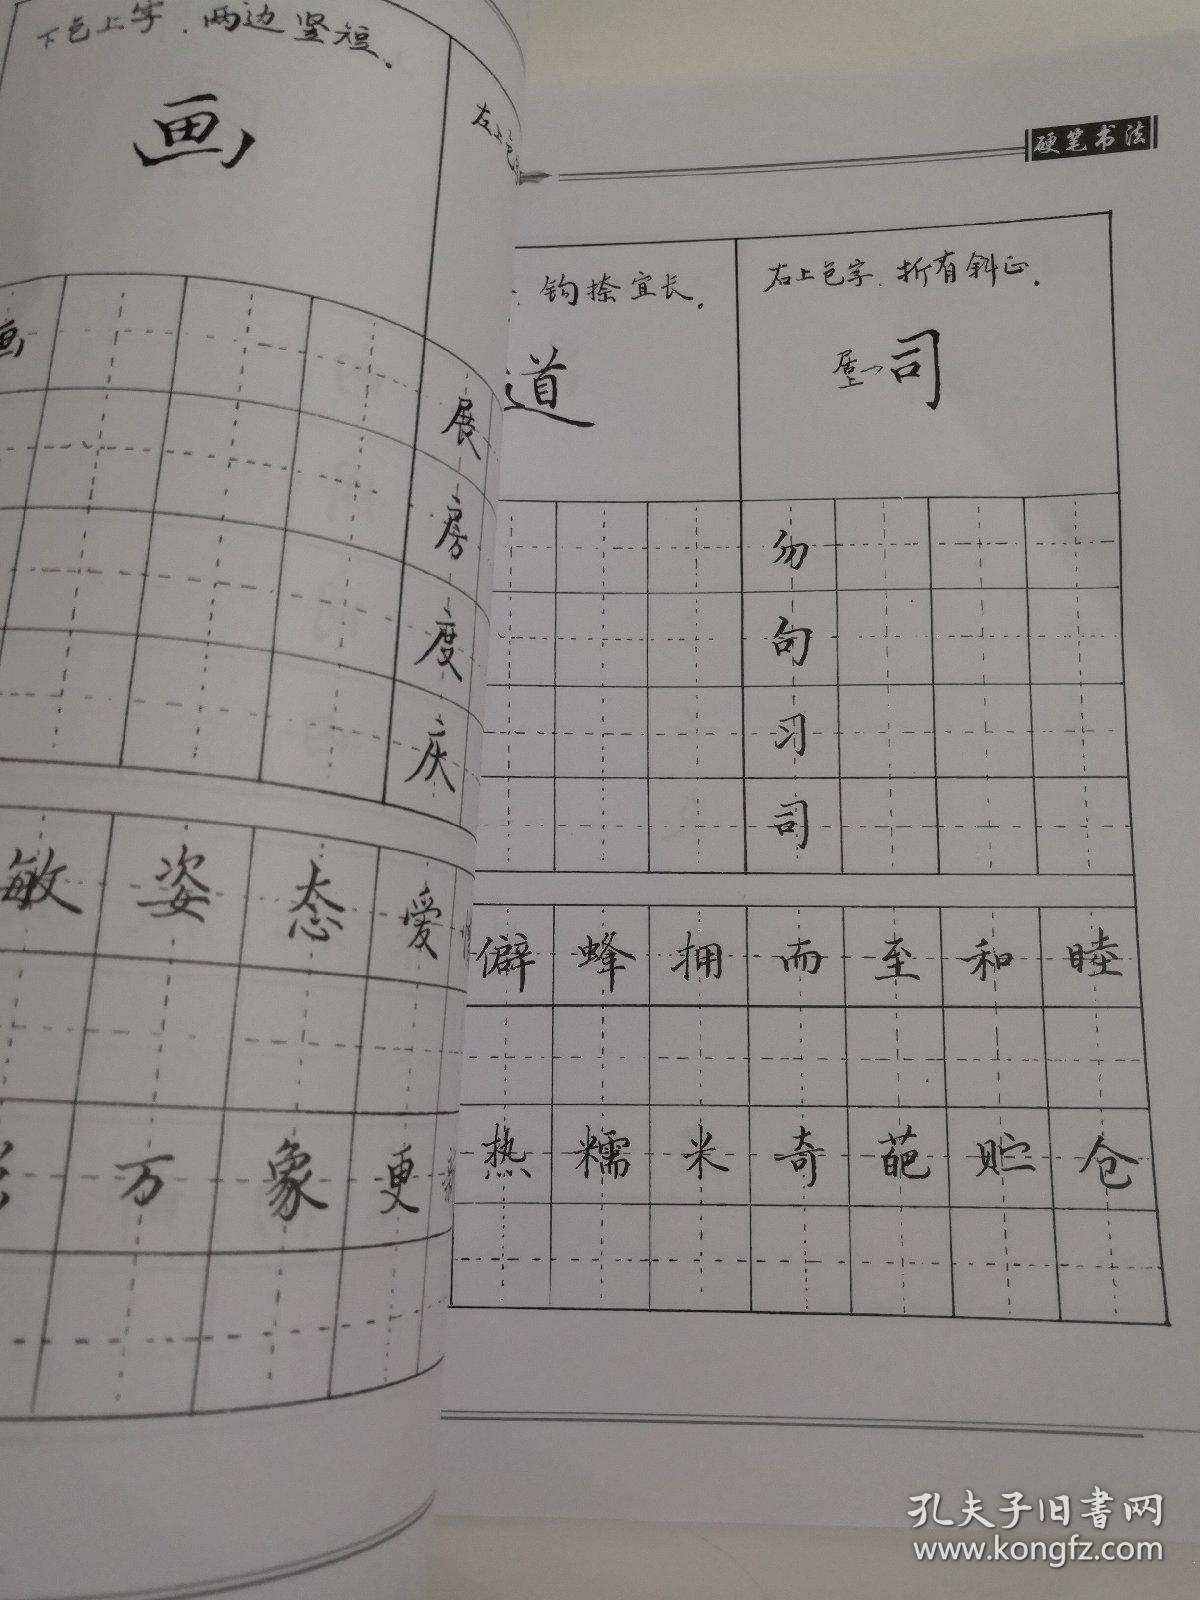 下包上字，两边竖短。
画
左上包
画
展
房
度
庆
敏 姿 态 爱
万 象 更
硬笔书法
钩捺宜长。
道
右上包字，折有斜正。
居上→司
勿
句
习
司
僻 蜂 拥 而 至 和 睦
热 糯 米 奇 葩 贮 仓
孔夫子旧书网
www.kongfz.com